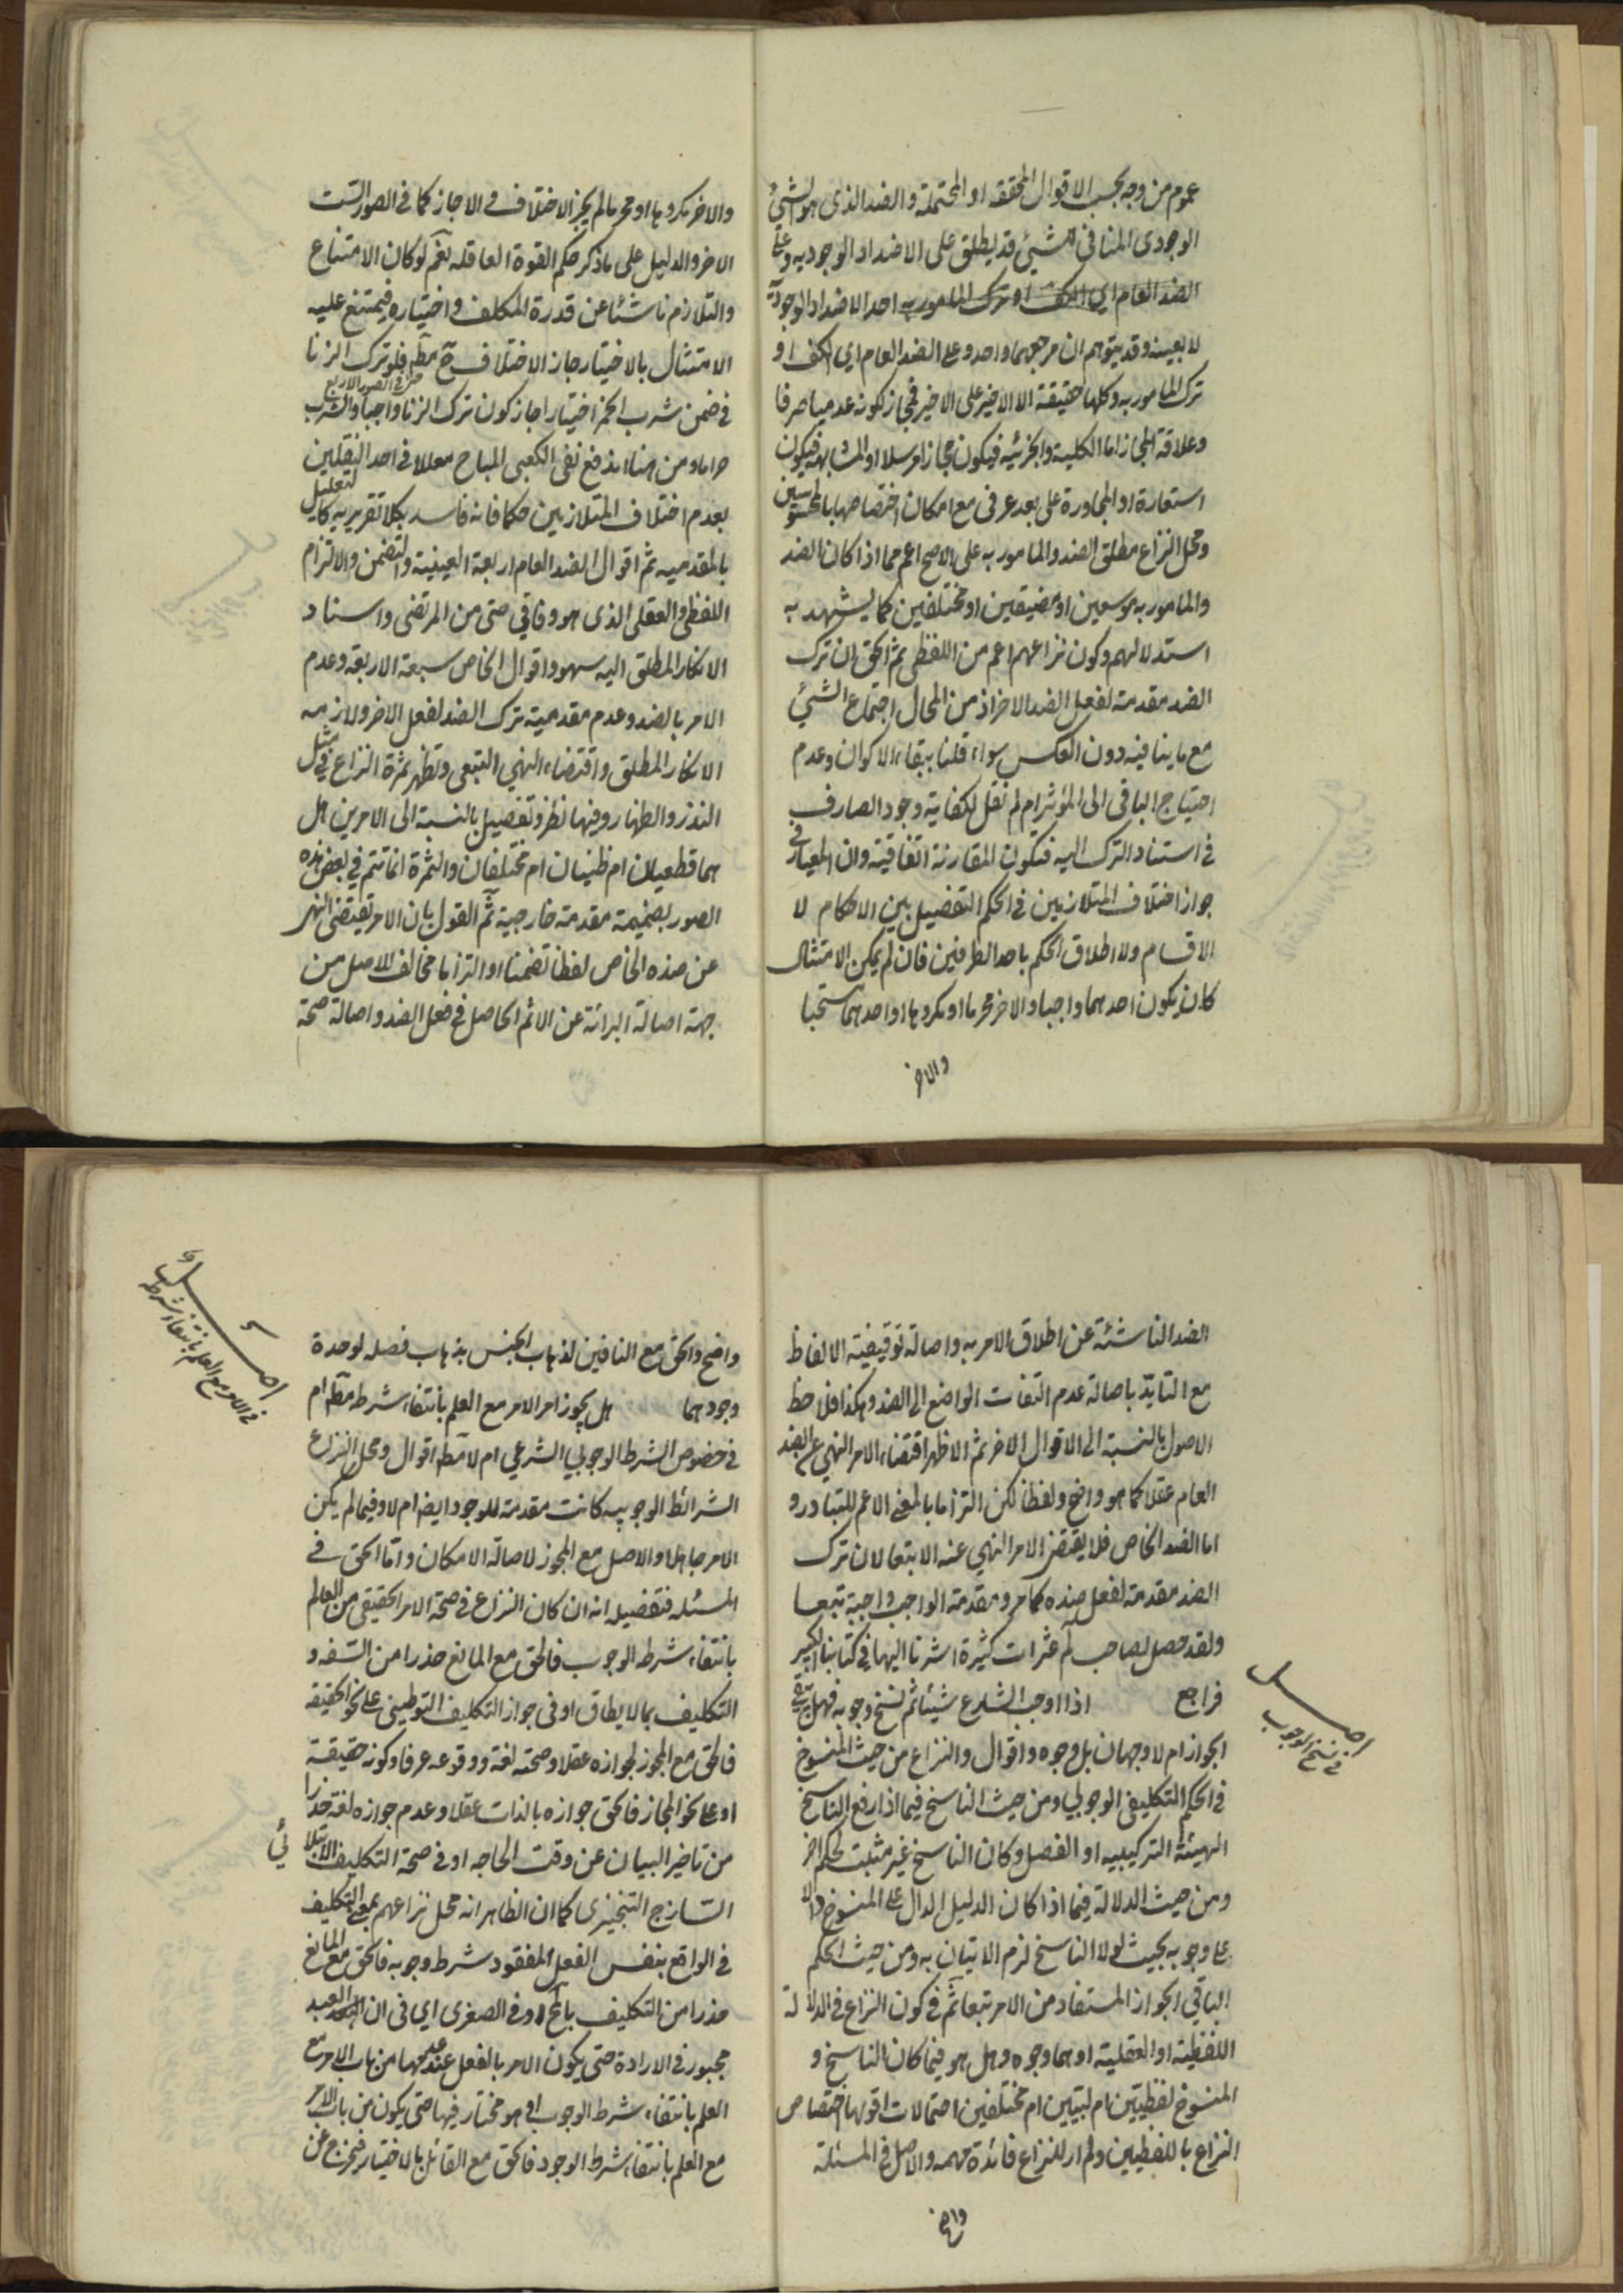 عموم من وجه بحسب الاقوال المحققه او المحتملة والضد الذى هو الشيئ
الوجودى المنافى للشيئ قد يطلق على الاضداد الوجوديه وعلى
الضد العام اي الكف او ترك المامور به احد الاضداد الوجودية
لا بعينه وقد يتوهم ان مرجعهما واحد وعلى الضد العام اي الكف او
ترك المامور به وكلها حقيقة الا الاخير على الاخير فمجاز لكونه عدميا صرفا
وعلاقة المجاز اما الكلية والجزئيه فيكون مجازا مرسلا او المشابهة فيكون
استعارة او المجاورة على بعد عرفى مع امكان اختصاصها بالمحسوسين
ومحل النزاع مطلق الضد والمامور به على الاصح اعم مما اذا كان الضد
والمامور به موسعين او مضيقين او مختلفين كما يشهد به
استدلالهم وكون نزاعهم اعم من اللفظى ثم الحق ان ترك
الضد مقدمة لفعل الضد الاخر اذ من المحال اجتماع الشيئ
مع ما ينافيه دون العكس سواء قلنا ببقاء الاكوان وعدم
احتياج الباقى الى المؤثر ام لم نقل لكفاية وجود الصارف
فى استناد الترك اليه فيكون المقارنة اتفاقية وان المعيار فى
جواز اختلاف المتلازمين فى الحكم التفصيل بين الاحكام لا
الاقسام ولا اطلاق الحكم باحد الطرفين فان لم يمكن الامتثال
كان يكون احدهما واجبا والاخر محرما او مكروها او احدهما مستحبا
والاخر
والاخر مكروها او محرما لم يجز الاختلاف و الا جاز كما فى الصور الست
الاخر والدليل على ما ذكر حكم القوة العاقله نعم لو كان الامتناع
والتلازم ناشئا عن قدرة المكلف واختياره فيمتنع عليه
الامتثال بالاختيار جاز الاختلاف ح مط فلو ترك الزنا
فى ضمن شرب الخمر اختيارا جاز كون ترك الزنا واجبا والشرب
حتى فى الصور الاربع
حراما ومن هنا اندفع نفى الكعبى المباح معللا فى احد النقلين
بعدم اختلاف المتلازمين حكما فانه فاسد بكلا تقريريه كالتعليل
بالمقدميه ثم اقوال الضد العام اربعة العينية والتضمن والالتزام
اللفظى والعقلى الذى هو وفاقي حتى من المرتضى واسناد
الانكار المطلق اليه سهو واقوال الخاص سبعة الاربعة وعدم
الامر بالضد وعدم مقدمية ترك الضد لفعل الاخر ولازمه
الانكار المطلق واقتضاء النهي التبعى وتظهر ثمرة النزاع فى مثل
النذر والظهار وفيها نظر وتفصيل بالنسبة الى الامرين هل
هما قطعيان ام ظنيان ام مختلفان والثمرة انما تتم في بعض هذه
الصور بضميمة مقدمة خارجية ثم القول بان الامر يقتضى النهى
عن ضده الخاص لفظا تضمنا او التزاما مخالف للاصل من
جهة اصالة البرائة عن الاثم الحاصل فى فعل الضد واصالة صحة
الضد الناشئة عن اطلاق الامر به واصالة توقيفية الالفاظ
مع التايد باصالة عدم التفات الواضع الى الضد وهكذا فلاحظ
الاصول بالنسبة الى الاقوال الاخر ثم الاظهر اقتضاء الامر النهي عن الضد
العام عقلا كما هو واضح ولفظا لكن التزاما بالمعنى الاعم للتبادر و
اما الضد الخاص فلا يقتضى الامر النهي عنه الا تبعا لان ترك
الضد مقدمة لفعل ضده كما مر ومقدمة الواجب واجبة تبعا
ولقد حصل لصاحب لم عثرات كثيرة اشرنا اليها فى كتابنا الكبير
فراجع اذا اوجب الشارع شيئا ثم نسخ وجوبه فهل يبقى
اصل
فى نسخ الوجوب
الجواز ام لا وجهان بل وجوه واقوال والنزاع من حيث المنسوخ
فى الحكم التكليفى الوجوبي ومن حيث الناسخ فيما اذا رفع الناسخ
الهيئة التركيبيه او الفصل وكان الناسخ غير مثبت لحكم اخر
ومن حيث الدلالة فيما اذا كان الدليل الدال على المنسوخ دالا
على وجوبه بحيث لولا الناسخ لزم الاتيان به ومن حيث الحكم
الباقي الجواز المستفاد من الامر تبعا ثم فى كون النزاع فى الدلالة
اللفظية او العقلية او هما وجوه وهل هو فيما كان الناسخ و
المنسوخ لفظيين ام لبيين ام مختلفين احتمالات اقولها اختصاص
النزاع باللفظيين ولم ار للنزاع فائدة مهمه والاصل فى المسئلة
واضح
واضح والحق مع النافين لذهاب الجنس بذهاب فصله لوحدة
وجودهما هل يجوز امر الامر مع العلم بانتفاء شرطه مط ام
اصل
فى الامر مع العلم بانتفاء شرطه
فى خصوص الشرط الوجوبي الشرعي ام لا مط اقوال ومحل النزاع
الشرائط الوجوبيه كانت مقدمة للوجود ايضا ام لا وفيما لم يكن
الامر جاهلا والاصل مع المجوز لاصالة الامكان واما الحق فى
المسئله فتفصيله انه ان كان النزاع فى صحة الامر الحقيقى من العالم
بانتفاء شرط الوجوب فالحق مع المانع حذرا من السفه و
التكليف بما لا يطاق او فى جواز التكليف التوطينى على نحو الحقيقه
فالحق مع المجوز لجوازه عقلا وصحته لغة ووقوعه عرفا وكونه حقيقة
او على نحو المجاز فالحق جوازه بالذات عقلا وعدم جوازه لغة حذرا
من تاخير البيان عن وقت الحاجه او فى صحة التكليف الابتلائي
السازج التنجيزى كما ان الظاهر انه محل نزاعهم بمعنى التكليف
فى الواقع بنفس الفعل المفقود شرط وجوبه فالحق مع المانع
حذرا من التكليف بالمح او فى الصغرى اي فى ان العبد
مجبور فى الارادة حتى يكون الامر بالفعل عند عدمها من باب الامر مع
العلم بانتفاء شرط الوجوب او هو مختار فيها حتى يكون من باب الامر
مع العلم بانتفاء شرط الوجود فالحق مع القائل بالاختيار فيخرج عن